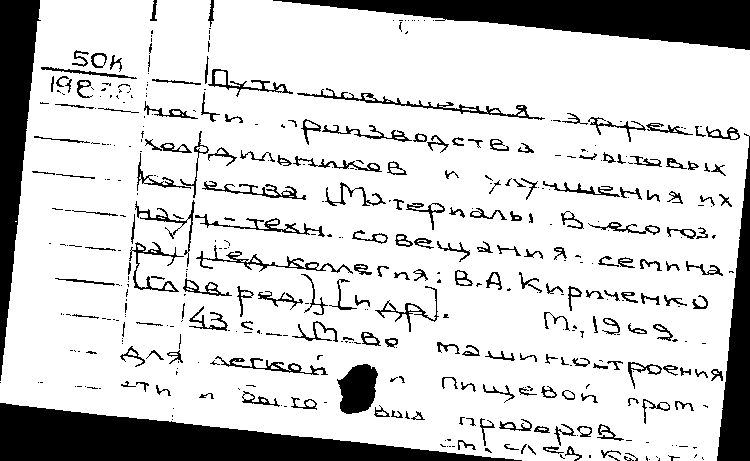 50К
Пути повышения эффектив-
ности производства бытовых
холодильников и улучшения их
качества. (Материалы Всесоюз.
науч.-техн. совещания-семина-
ра). [Ред. коллегия: В.А. Кириченко
(глав. ред.), [и др]. М., 1969.
43 с. (М-во машиностроения
для легкой и пищевой пром-
сти и быто- вых приборов
см. след. карт